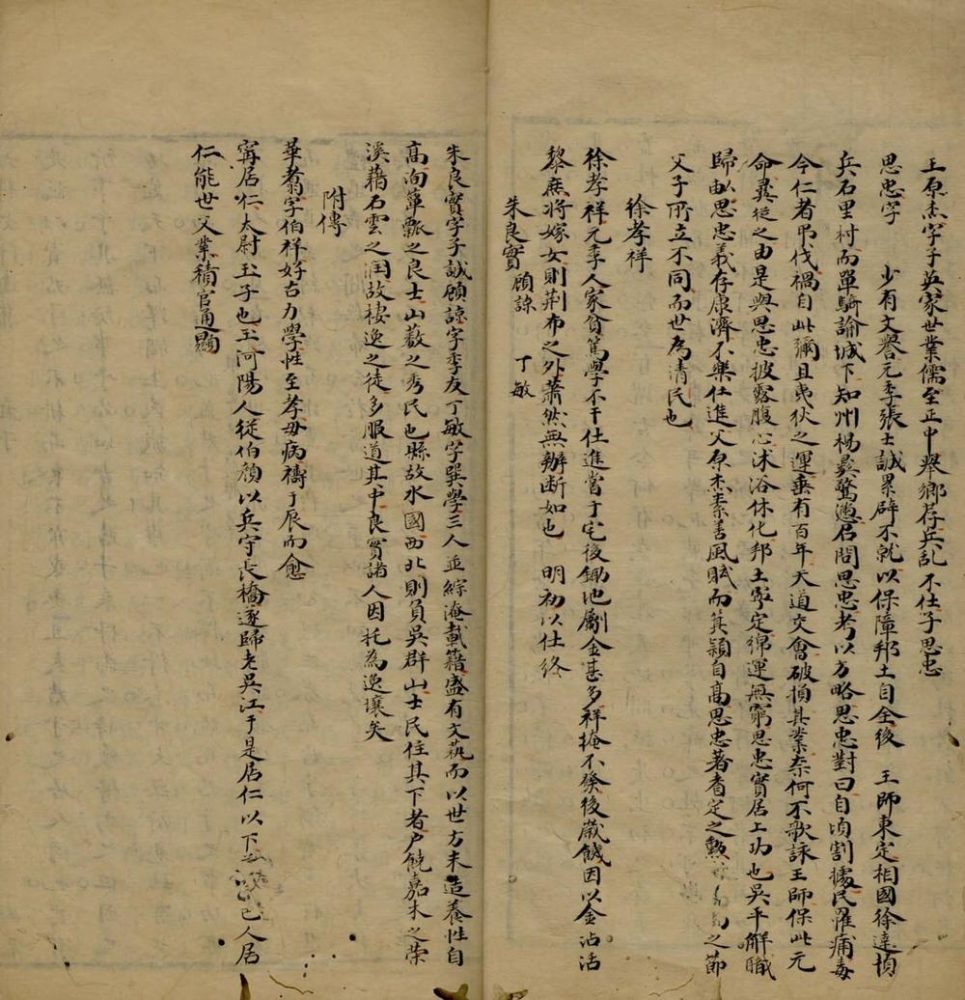 王原杰字子英家世業儒至正中舉鄉荐兵乱不仕子思忠
思忠字 少有文譽元季張士誠累辟不就以保障邦土自全後 王師東定相國徐達頓
兵石里村而單騎論城下知州楊彝驚遽召問思忠考以方略思忠對曰自頃割據民罹痛毒
今仁者弔伐禍自此彌且夷狄之運垂有百年天道交會破損其業柰何不歌詠王師保此元
命彝從之由是與思忠披露腹心沐浴休化邦土寧定綿運無窮思忠實居上功也吳平解職
歸由以思忠義存康濟不樂仕進父原杰素善風賦而箕潁自高思忠著耆定之勲 之節
父子所立不同而世為清民也
徐孝祥
徐孝祥元季人家貧篤學不干仕進當于宅後鋤地劚金甚多祥掩不發後歲饑因以金沾沽
黎庶將嫁女則荆布之外蕭然無辦断如也 明初以仕終
朱良實 顧諒 丁敏
朱良實字子誠顧諒字季友丁敏字巽學三人並綜淹載籍盛有文蓺而以世方未造養性自
高洵簞瓢之良士山藪之秀民也縣故水國西北則負吳群山士民住其下者户饒嘉木之榮
溪藉石雲之潤故棲逸之徒多服道其中良實諸人因托為逸壤矣
附傳
華翥字伯祥好古力學性至孝毋病禱于辰而愈
甯居仁太尉玉子也玉河陽人從伯顏以兵守長橋遂歸老吳江于是居仁以下 邑人居
仁能世父業積官通顯